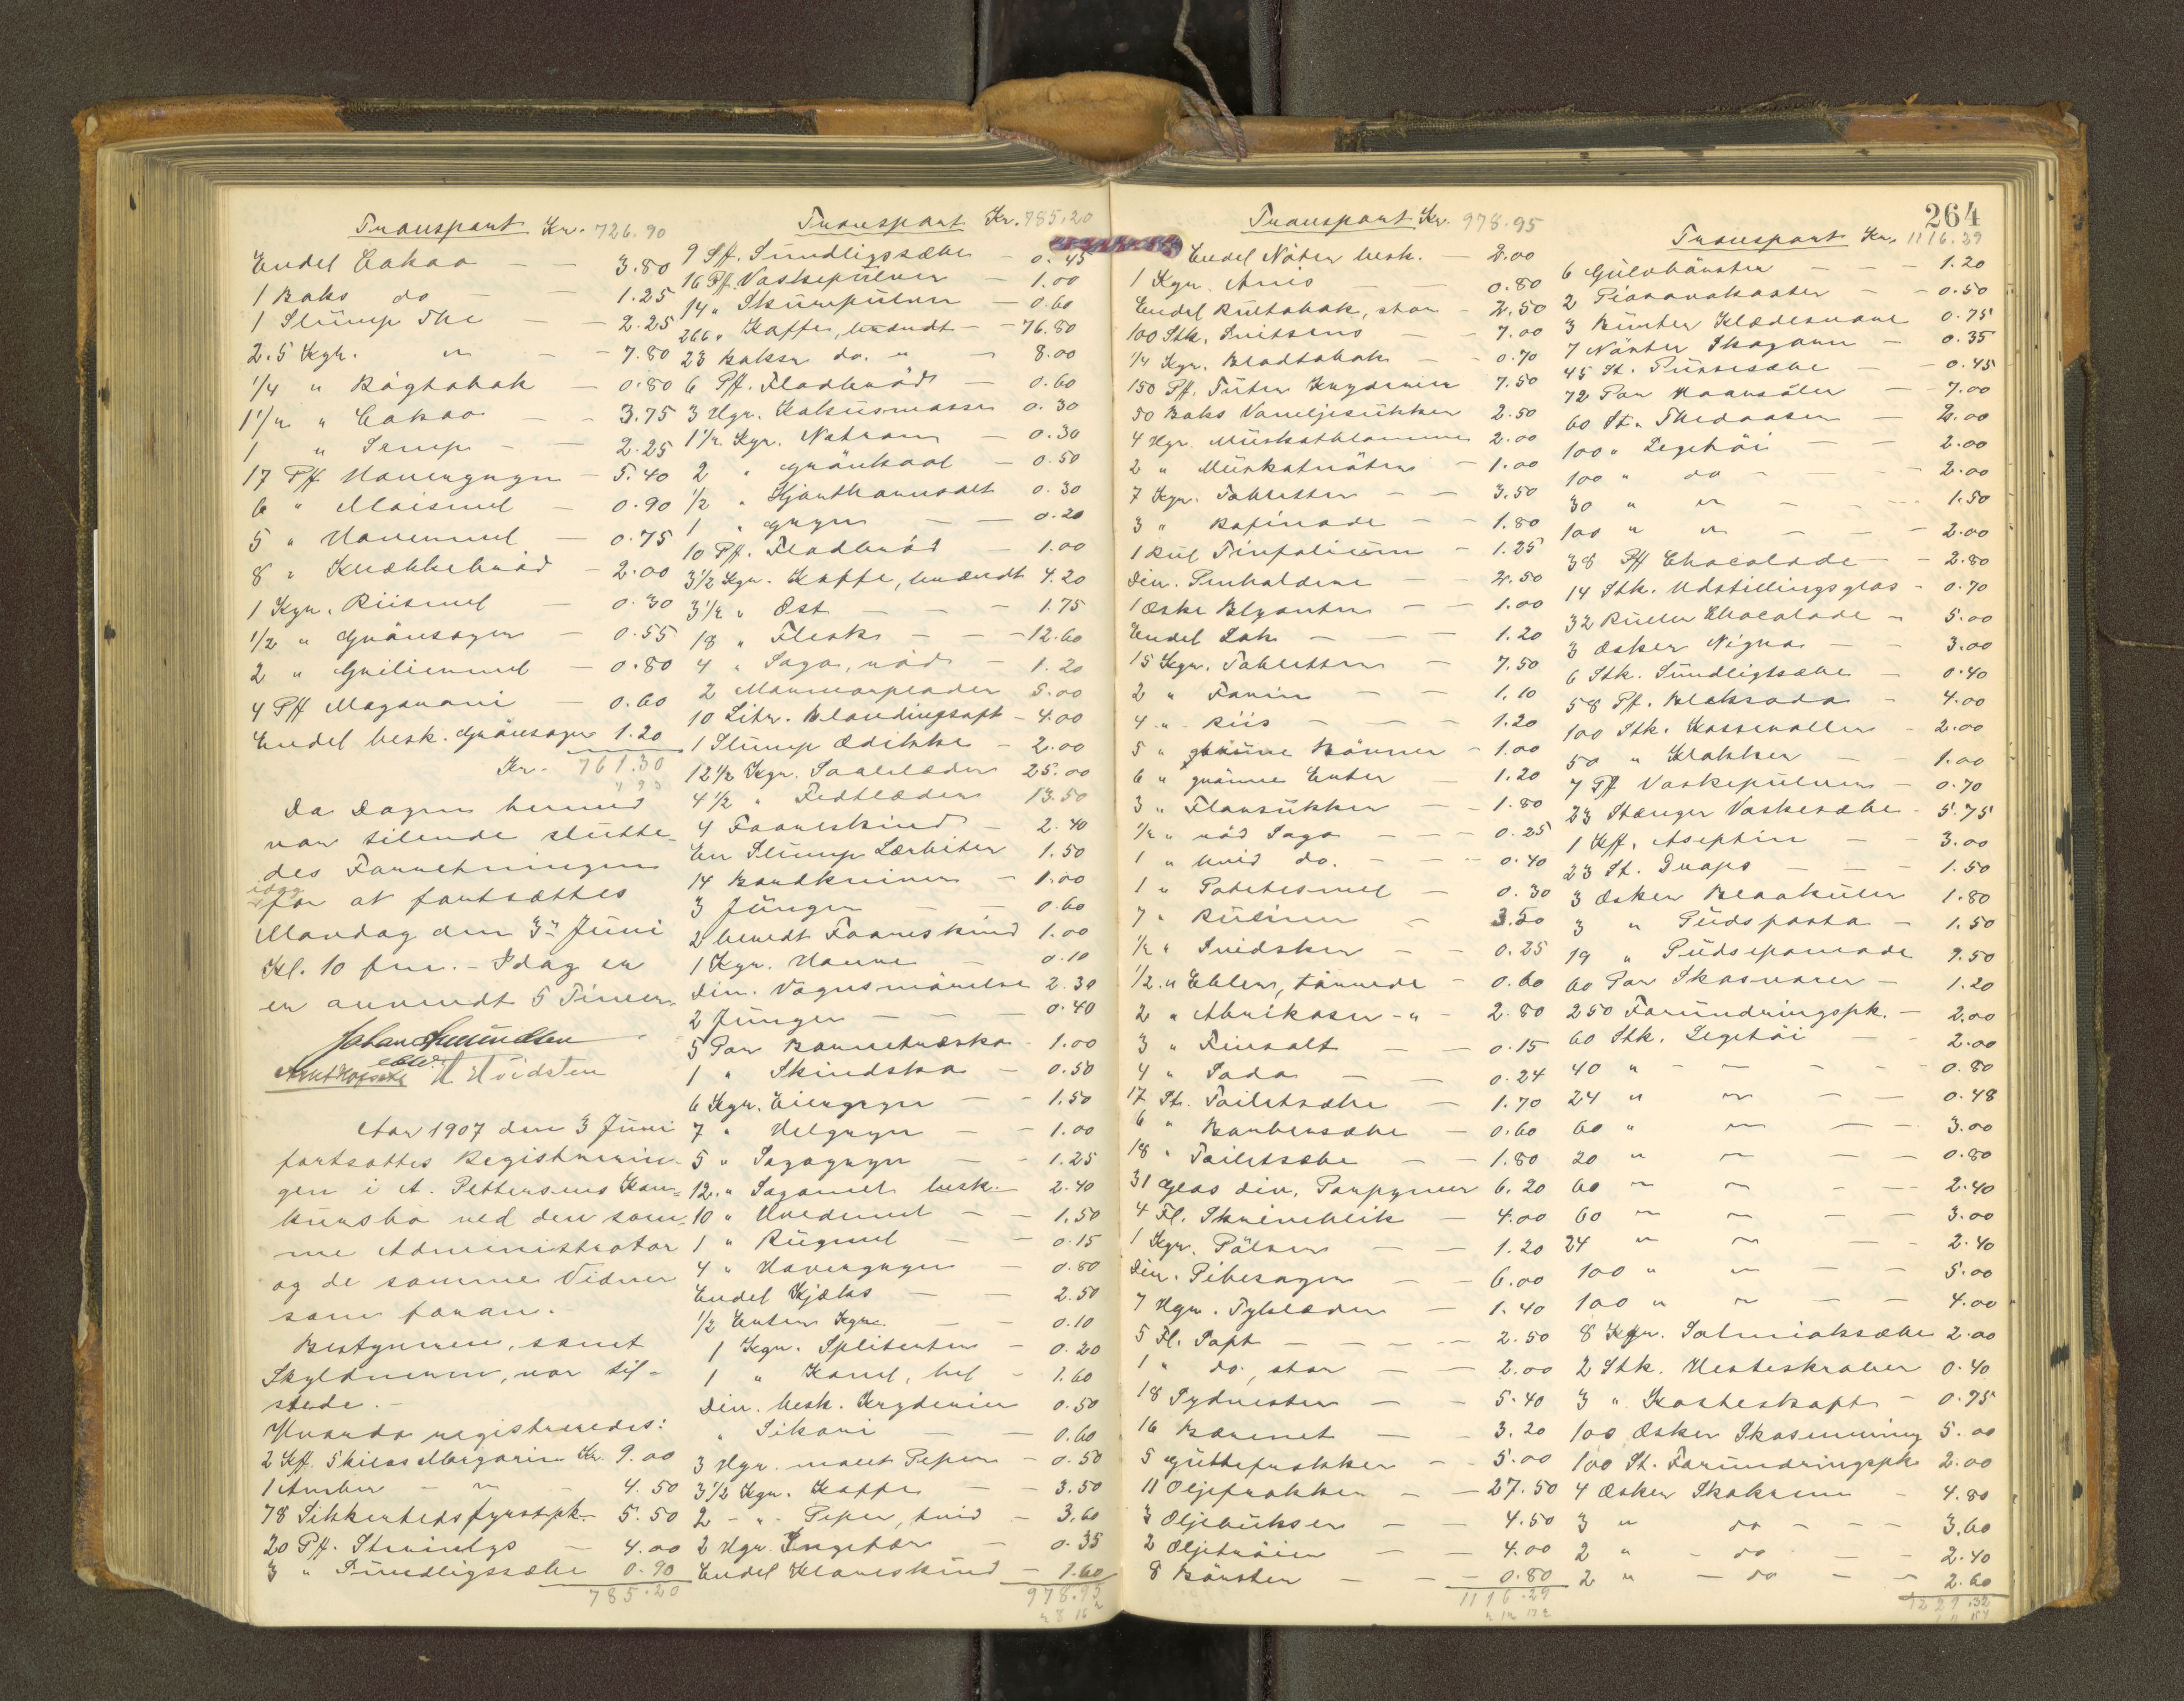 Transport Kr. 726.90
Endel Cakao — 3.80
1 Boks do — 1.25
1 Slump The — 2.25
2.5 Kgr. " — 7.80
1/4 " Røgtobak — 0.80
1 1/2 " Cakao — 3.75
1 " Senep — 2.25
17 Pff Havregryn — 5.40
6 " Maismel — 0.90
5 " Havremel — 0.75
8 " Knækkebrød — 2.00
1 Kgr. Riismel — 0.30
1/2 " Grønsager — 0.55
2 " Griliermel — 0.80
4 Pff Magaroni — 0.60
Endel besk. Grønsager 1.20
Kr. 761.30
Da Dagen hermed
var tilende slutte-
des Forretningen
idag
for at fortsættes
Mandag den 3de Juni
Kl. 10 fm. - Idag er
er anvendt 5 Timer.
Johan Amundsen
H Høidsten
Aar 1907 den 3 Juni
fortsattes Registrerin-
gen i A. Pettersens Kon-
kursbo ved den sam-
me Administrator
og de samme Vidner
som foran.
Bestyreren, samt
Skyldneren, var til-
stede. -
Hvorda registreredes:
2 Kff. Skiens Margarin Kr. 9.00
1 Amber — " — 4.50
78 Sikkerhedsfyrstpk. 5.50
20 Pff. Stearinlys — 4.00
3 " Sundligssæbe 0.90
785.20
Transport Kr. 785.20
9 Pff. Sundligssæbe — 0.45
16 Pff. Vaskepulver — 1.00
14 " Skurepulver — 0.60
266 " Kaffe, brændt — 76.80
23 bokser do. " — 8.00
6 Pff. Fladbrød — 0.60
3 Hgr. Kokusmasse 0.30
1 1/2 Kgr. Natron — 0.30
2 " Grønkaal — 0.50
1/2 " Hjorthornsalt 0.30
1 " Gryn — 0.20
10 Pff. Fladbrød — 1.00
3 1/2 Kgr. Kaffe, brændt 4.20
3 1/2 " Ost — 1.75
18 " Flesk — 12.60
4 " Sago, rød — 1.20
2 Marmorplader 5.00
10 Litr. Blandingsaft — 4.00
1 Slump Ædikke — 2.00
12 1/2 Kgr. Saalelæder 25.00
4 1/2 " Fedtlæder 13.50
4 Faareskind — 2.40
En Slump Lærbiter 1.50
14 Bordkniver — 1.00
3 Junger — 0.60
2 beredt Faareskind 1.00
1 Kgr. Hauve — 0.10
Div. Vognsmørelse 2.30
2 Junger — 0.40
5 Par Barnetræsko 1.00
1 " Skindsko — 0.50
6 Kgr. Eiergryn — 1.50
7 " Helgryn — 1.00
5 " Sagogryn — 1.25
12 " Sagomel besk. — 2.40
10 " Hvedemel — 1.50
1 " Rugmel — 0.15
4 " Havregryn — 0.80
Endel Kjæks — 2.50
1/2 Erter Kgr. — 0.10
1 Kgr. Spliterter — 0.20
1 " Kanel, hel — 1.60
Div. besk. Kryderier 0.50
" Sikori — 0.60
3 Hgr. malt Peper — 0.50
3 1/2 Kgr. Kaffe — 3.50
2 - " - Peper, hvid — 3.60
2 Hgr. Ingefær — 0.35
Endel Klaveskind — 1.60
978.95
Transport Kr. 978.95
Endel Nøter besk. — 2.00
1 Kgr. Anis — 0.80
Endel Rultobak, stor — 2.50
100 Stk. Snitsens — 7.00
1/4 Kgr. Bladtobak — 0.70
150 Pff. Tuter Kryderier 7.50
50 Boks Vaneljesukker 2.50
4 Hgr. Muskatblomme 2.00
2 " Muskatnøter — 1.00
7 Kgr. Tabletter — 3.50
3 " Rafinade — 1.80
1 Rul Tinfolium — 1.25
Div. Penholdere — 2.50
1 Æske Blyanter — 1.00
Endel Lak — 1.20
15 Kgr. Tabletter — 7.50
2 " Farin — 1.10
4 " Riis — 1.20
5 " brune Bønner — 1.00
6 " grønne Erter — 1.20
3 " Florsukker — 1.80
1/2 " rød Sago — 0.25
1 " hvid do. — 0.40
1 " Potetesmel — 0.30
7 " Rusiner — 3.50
1/2 " Svidsker — 0.25
1/2 " Ebler, tørrede — 0.60
2 " Abrikoser - " - 2.80
3 " Finsalt — 0.15
4 " Soda — 0.24
17 St. Toiletsæbe — 1.70
6 " Barbersæbe — 0.60
18 " Toiletsæbe — 1.80
31 Glas div. Parfymer 6.20
4 Fl. Skriveblik — 4.00
1 Kgr. Pølser — 1.20
Div. Pibesager — 6.00
7 Hgr. Sylelæder — 1.40
5 Fl. Saft — 2.50
1 " do., stor — 2.00
18 Sydvester — 5.40
16 Bærenet — 3.20
5 Guttefrakker — 5.00
11 Oljefrakker — 27.50
3 Oljebukser — 4.50
2 Oljetrøier — 4.00
8 Børster — 0.80
1116.29
264
Transport Kr. 1116.29
6 Gulvbørster — 1.20
2 Piasavakoster — 0.50
3 Bunter Klædesnore 0.75
7 Nøster Skogarn — 0.35
45 St. Pudsesæbe — 0.45
72 Par Haarsåler — 7.00
60 St. Thedaaser — 2.00
100 " Legetøi — 2.00
100 " do — 2.00
30 " " — 1.50
100 " " — 2.00
38 Pff Chocolade — 2.80
14 Stk. Udstillingsglas — 0.70
32 Ruller Chocolade — 5.00
3 Æsker Nigra — 3.00
6 Stk. Sundligtsæbe — 0.40
58 Pf. Bleksoda — 4.00
100 Stk. Kasseroller — 2.00
50 " Klokker — 1.00
7 Pff Vaskepulver — 0.70
23 Stænger Vaskesæbe — 5.75
1 Kff. Aseptin — 3.00
23 St. Draps — 1.50
3 Æsker Blaakuler 1.80
3 " Pudspasta — 1.50
19 " Pudsepomade 9.50
60 Par Skosnorer — 1.20
250 Forundringspk. — 2.00
60 Stk. Legetøi — 2.00
40 " - — 0.80
24 " " — 0.48
60 " " — 3.00
20 " " — 0.80
60 " " — 2.40
60 " " — 3.00
24 " " — 2.40
100 " " — 5.00
100 " " — 4.00
8 Kgr. Salmiaksæbe 2.00
2 Stk. Hesteskraber 0.40
3 " Kosteskaft — 0.75
100 Æsker Skosmurning 5.00
100 St. Forundringspk 2.00
4 Æsker Skokrem — 4.80
3 " do — 3.60
2 " - do — 2.40
2 " - do — 2.60